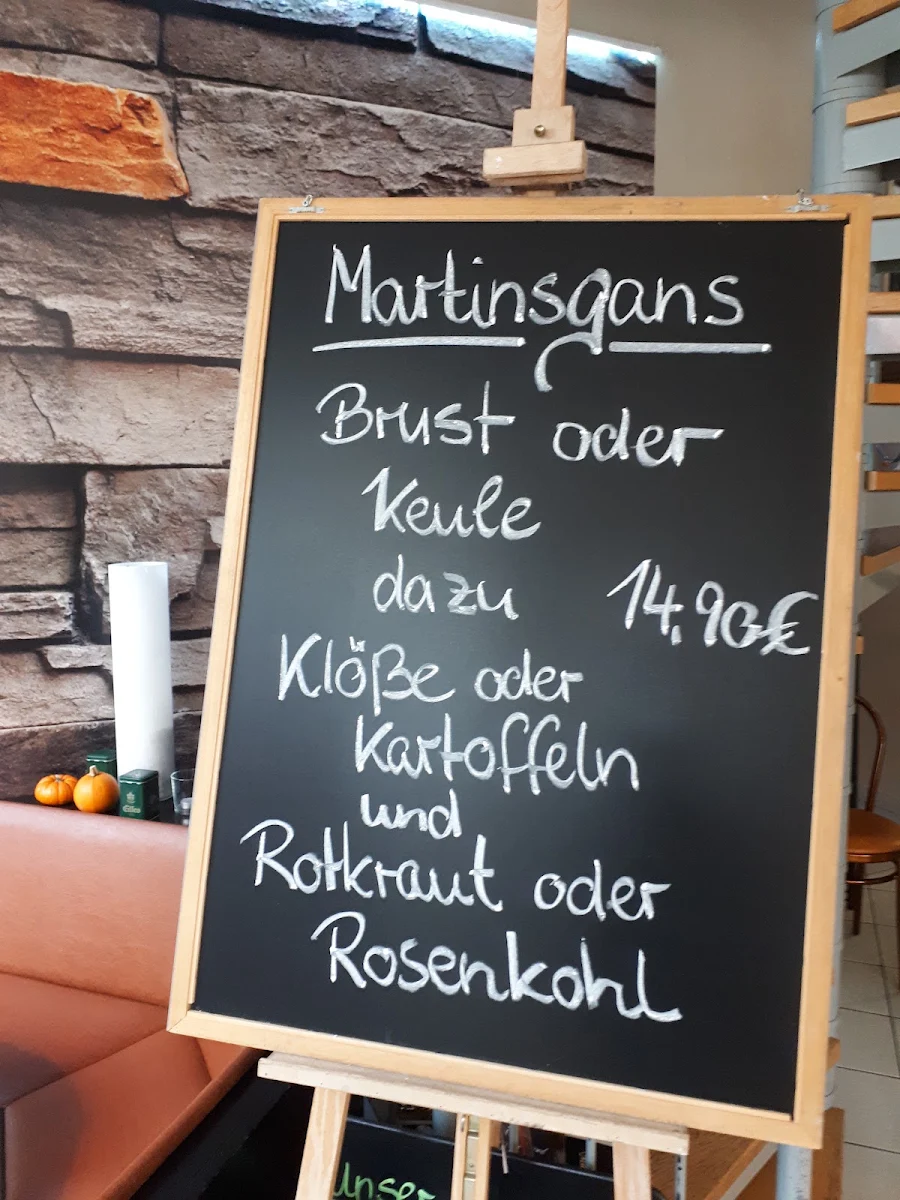 Martinsgans
Brust oder
Keule
dazu 14,90€
Klöße oder
Kartoffeln
und
Rotkraut oder
Rosenkohl
Eilles
Unser